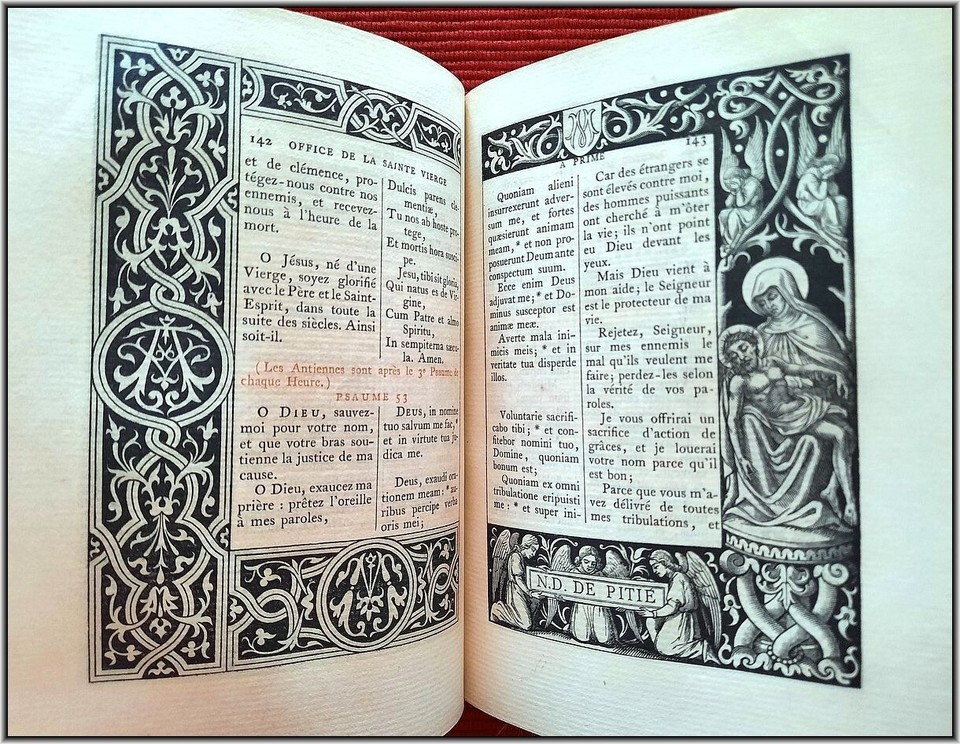 142 OFFICE DE LA SAINTE VIERGE
et de clémence, pro-
tégez-nous contre nos
ennemis, et recevez-
nous à l'heure de la
mort.
O Jésus, né d'une
Vierge, soyez glorifié
avec le Père et le Saint-
Esprit, dans toute la
suite des siècles. Ainsi
soit-il.
Dulcis parens cle-
mentiæ,
Tu nos ab hoste pro-
tege,
Et mortis hora susci-
pe.
Jesu, tibi sit gloria,
Qui natus es de Vir-
gine,
Cum Patre et almo
Spiritu,
In sempiterna sæcu-
la. Amen.
(Les Antiennes sont après le 3e Psaume de
chaque Heure.)
PSAUME 53
O DIEU, sauvez-
moi pour votre nom,
et que votre bras sou-
tienne la justice de ma
cause.
O Dieu, exaucez ma
prière : prêtez l'oreille
à mes paroles,
DEUS, in nomine
tuo salvum me fac, *
et in virtute tua ju-
dica me.
Deus, exaudi ora-
tionem meam : * au-
ribus percipe verba
oris mei ;
M
A PRIME 143
Quoniam alieni
insurrexerunt adver-
sum me, et fortes
quæsierunt animam
meam, * et non pro-
posuerunt Deum ante
conspectum suum.
Ecce enim Deus
adjuvat me ; * et Do-
minus susceptor est
animæ meæ.
Averte mala ini-
micis meis ; * et in
veritate tua disperde
illos.
Voluntarie sacrifi-
cabo tibi ; * et con-
fitebor nomini tuo,
Domine, quoniam
bonum est ;
Quoniam ex omni
tribulatione eripuisti
me : * et super ini-
Car des étrangers se
sont élevés contre moi,
des hommes puissants
ont cherché à m'ôter
la vie ; ils n'ont point
eu Dieu devant les
yeux.
Mais Dieu vient à
mon aide ; le Seigneur
est le protecteur de ma
vie.
Rejetez, Seigneur,
sur mes ennemis le
mal qu'ils veulent me
faire ; perdez-les selon
la vérité de vos pa-
roles.
Je vous offrirai un
sacrifice d'action de
grâces, et je louerai
votre nom parce qu'il
est bon ;
Parce que vous m'a-
vez délivré de toutes
mes tribulations, et
N.D. DE PITIÉ